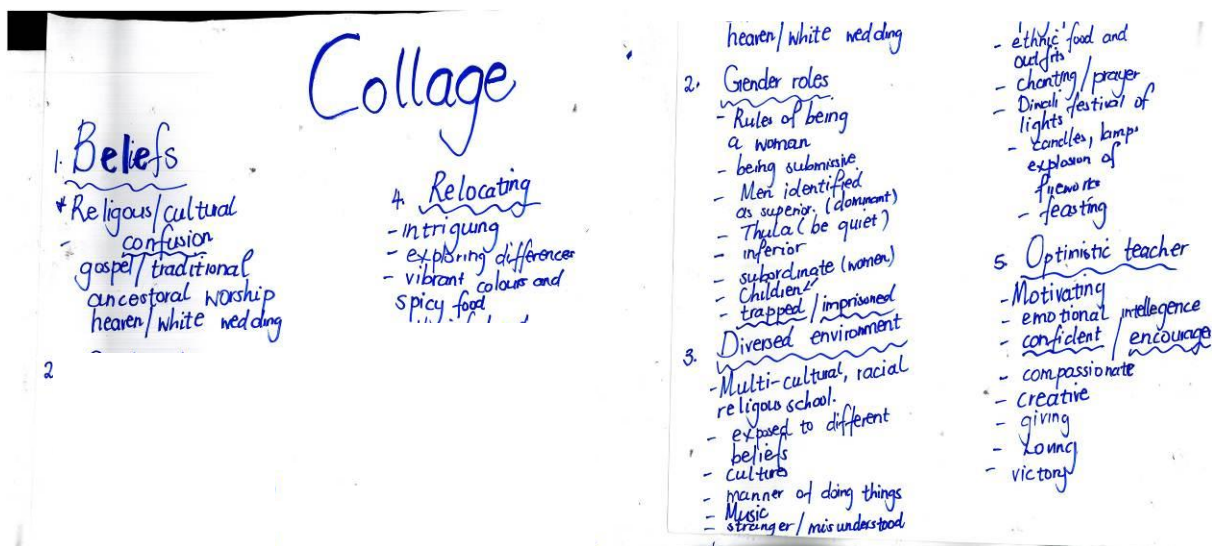 Collage
1. Beliefs
* Religous/cultural
- confusion
gospel/traditional
ancestoral worship
heaven/white wedding
2
4. Relocating
- intriguing
- exploring differences
- vibrant colours and
spicy food
heaven/white wedding
2. Gender roles
- Rules of being
a woman
- being submissive
- Men identified
as superior. (dominant)
- Thula (be quiet)
- inferior
- subordinate (women)
- Children
- trapped/imprisoned
3. Diversed environment
- Multi-cultural, racial
religous school.
- exposed to different
beliefs
- culture
- manner of doing things
- Music
- stranger/misunderstood
- ethnic food and
outfits
- chanting/prayer
- Diwali festival of
lights
- candles, lamps
explosion of
fireworks
- feasting
5. Optimistic teacher
- Motivating
- emotional intellegence
- confident / encourage
- compassionate
- creative
- giving
- victory